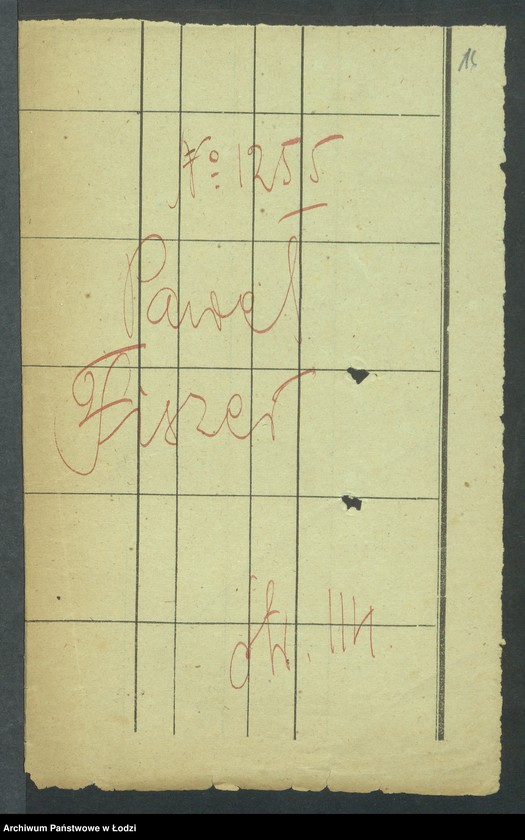 № 1255
Paweł
Fiszer
Archiwum Państwowe w Łodzi